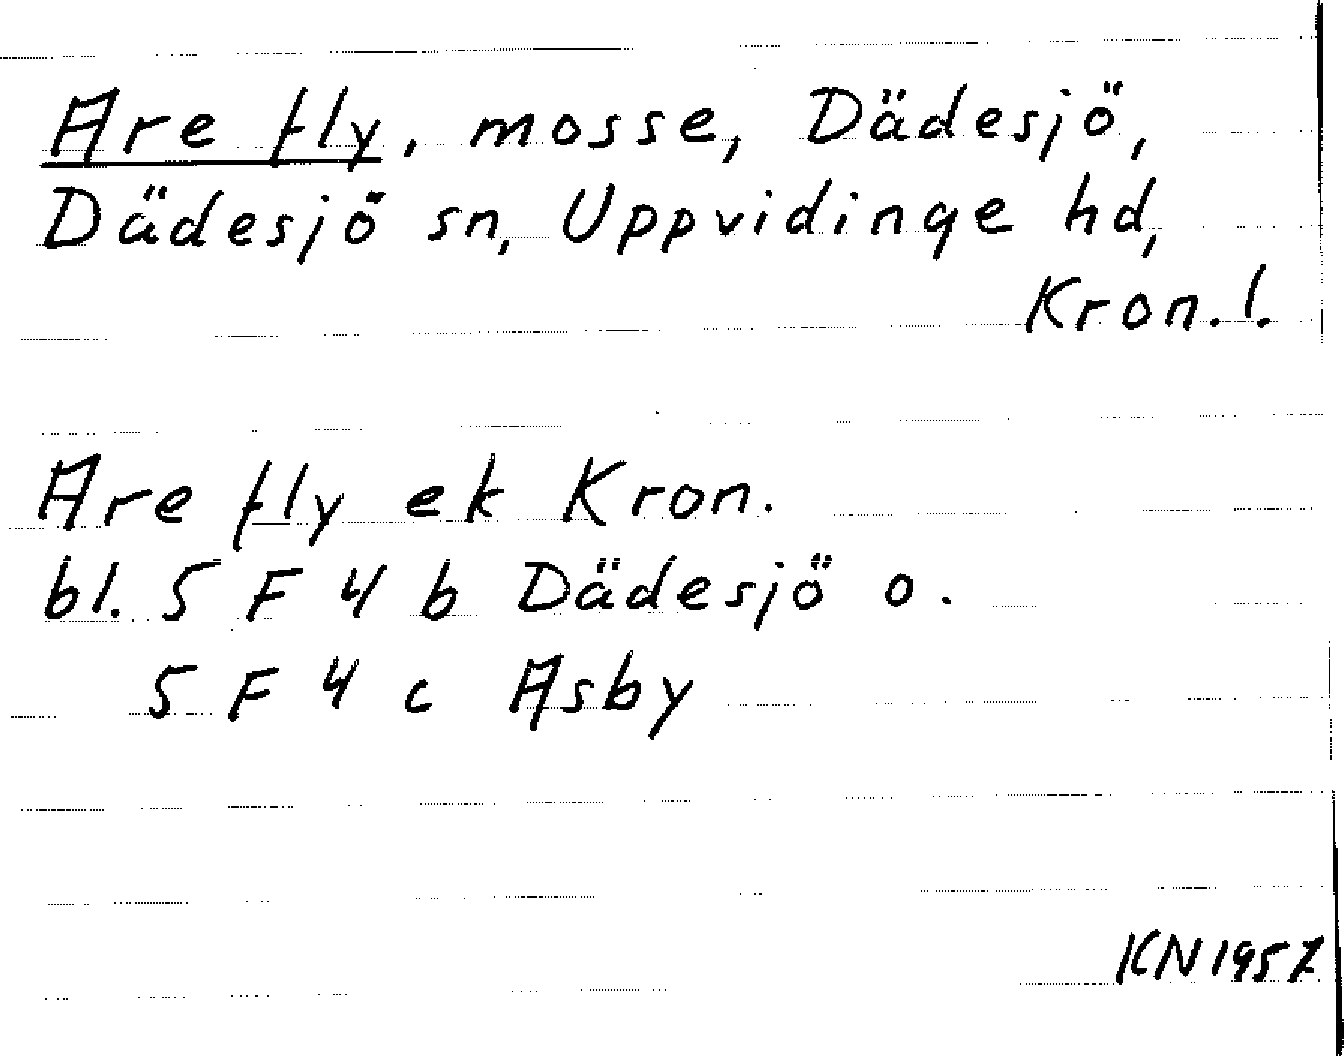 Are fly, mosse, Dädesjö,
Dädesjö sn, Uppvidinge hd,
Kron. l.
Are fly ek Kron.
bl. 5 F 4 b Dädesjö o.
5 F 4 c Asby
KN 1957